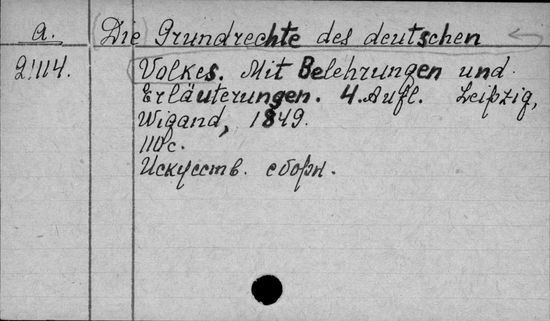 a. (Die) Grundrechte des deutschen
2/114. Volkes. Mit Belehrungen und
Erläuterungen. 4. Aufl. Leipzig,
Wigand, 1849.
110 с.
Искусств. сборн.